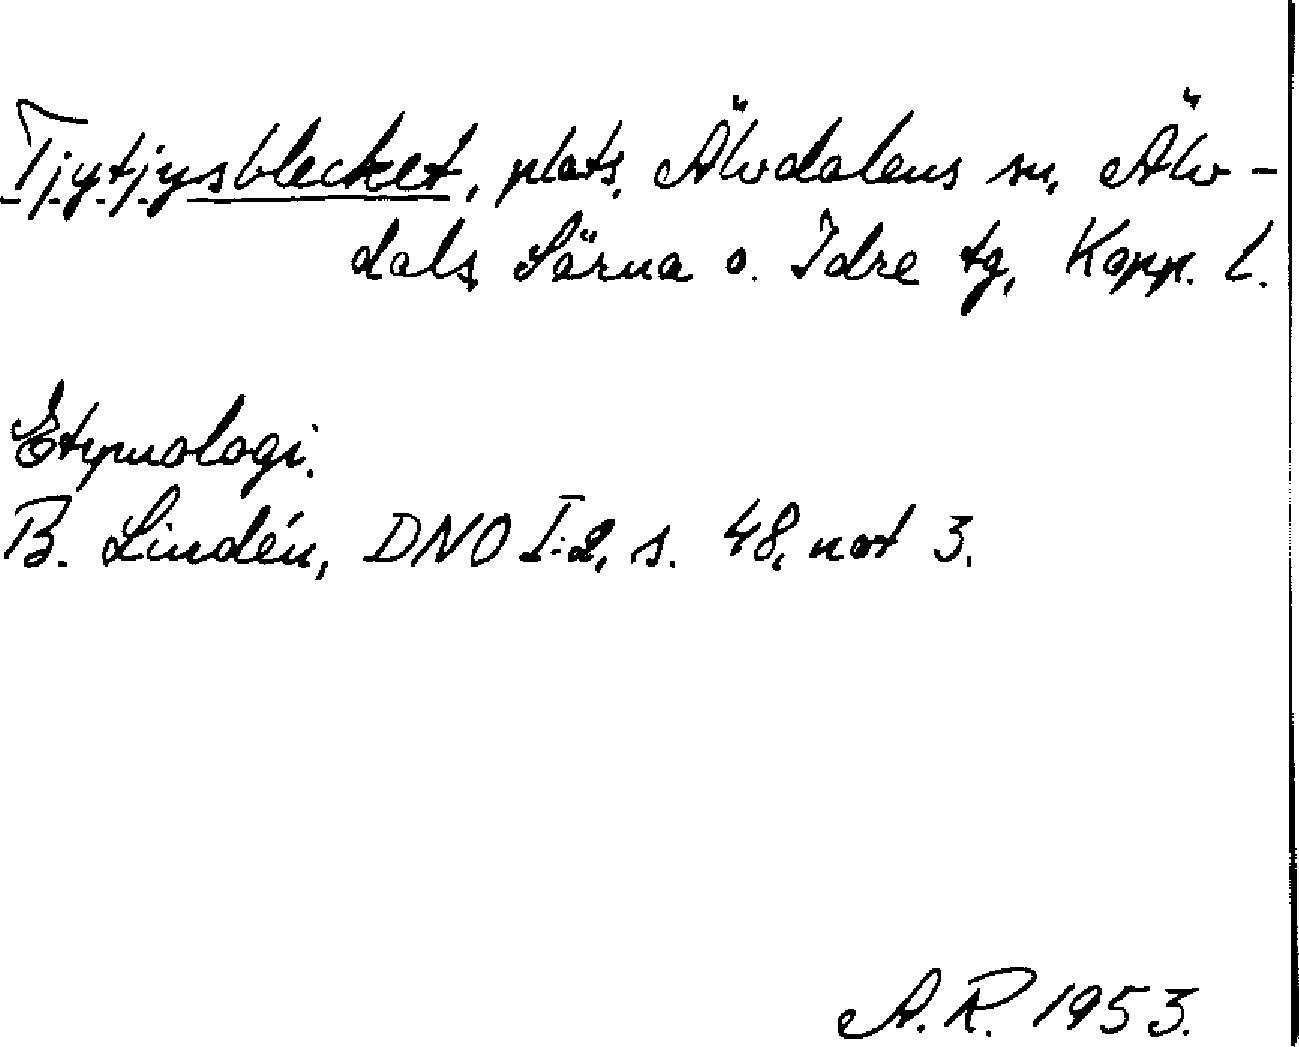 Tjytjysblecket, plats, Älvdalens sn, Älv-
dals, Särna o. Idre tg, Kopp. l.
Etymologi.
B. Lindén, DNO I:2, s. 48, not 3.
A.R. 1953.